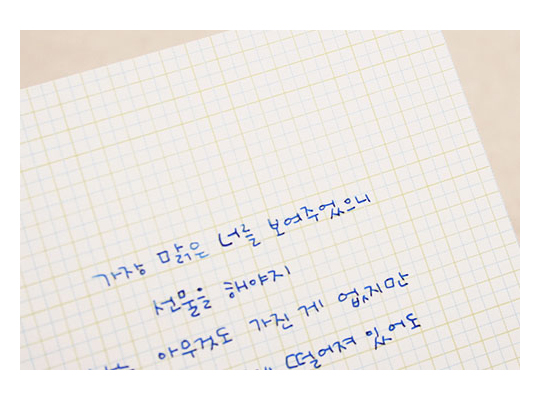 가장 맑은 너를 보여주었으니
선물을 해야지
아무것도 가진 게 없지만
떨어져 있어도